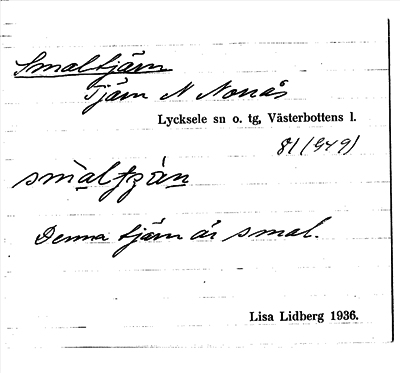 Smaltjärn
Tjärn N Norrås
Lycksele sn o. tg, Västerbottens l.
81 (949)
Denna tjärn är smal.
Lisa Lidberg 1936.